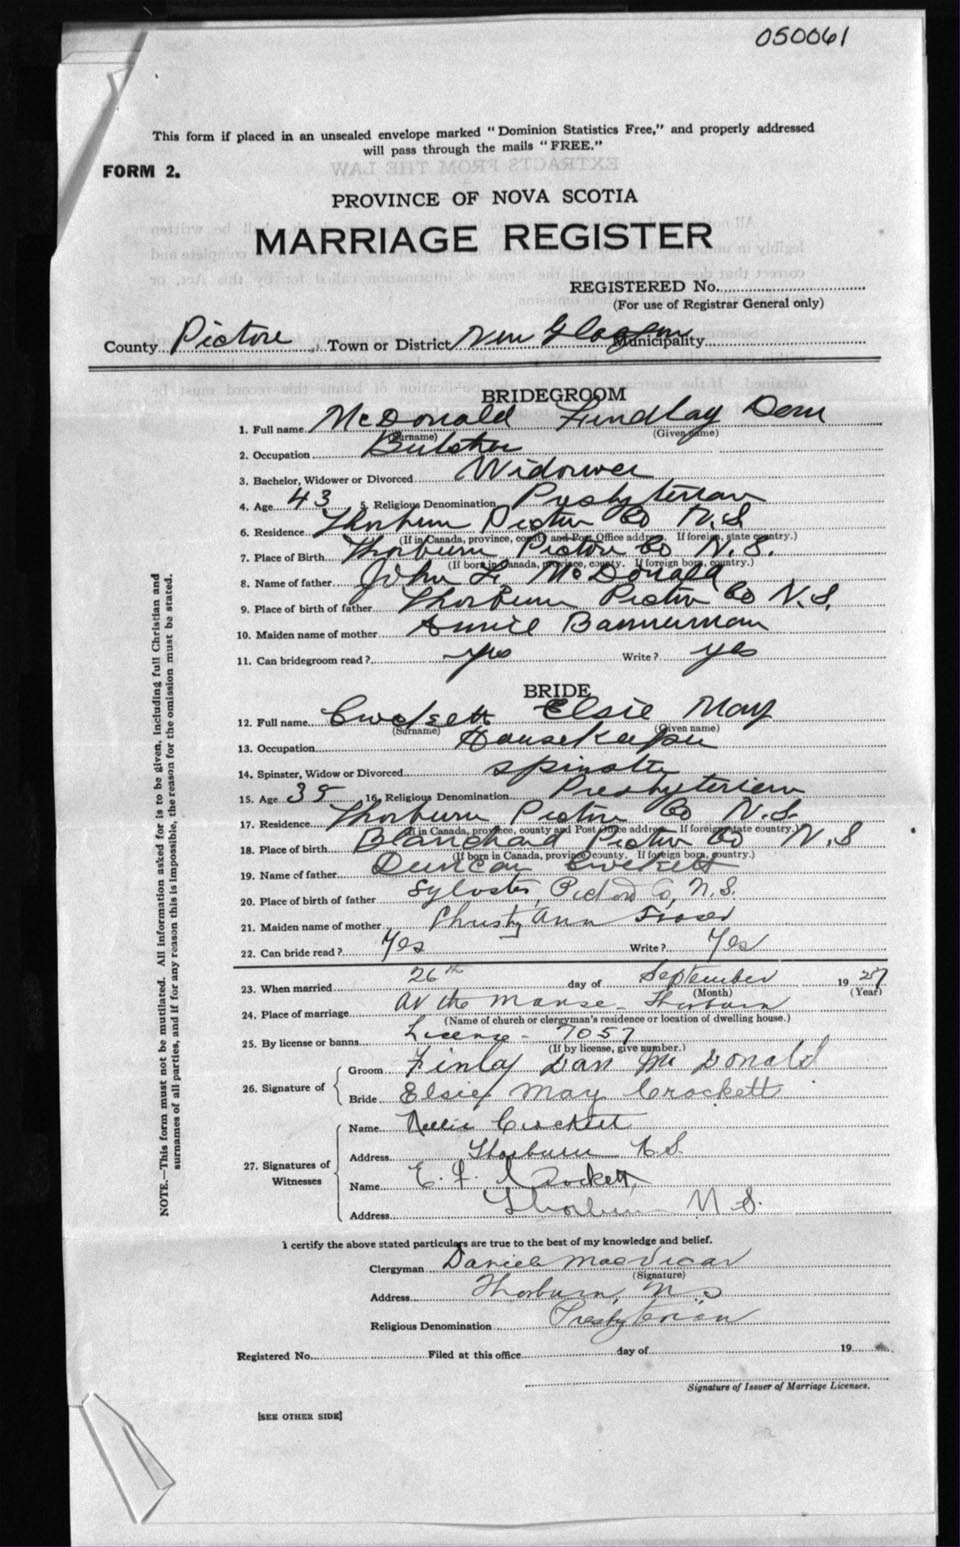 050061
This form if placed in an unsealed envelope marked "Dominion Statistics Free," and properly addressed
will pass through the mails "FREE."
FORM 2.
PROVINCE OF NOVA SCOTIA
MARRIAGE REGISTER
REGISTERED No.
(For use of Registrar General only)
County Pictou Town or District New Glasgow Municipality
BRIDEGROOM
1. Full name McDonald Findlay Dan
(Surname) (Given name)
2. Occupation
3. Bachelor, Widower or Divorced Widower
4. Age 43 5. Religious Denomination Presbyterian
6. Residence Thorburn Pictou Co N.S
(If in Canada, province, county and Post Office address. If foreign, state country.)
7. Place of Birth Thorburn Pictou Co N.S.
(If born in Canada, province, county. If foreign born, country.)
8. Name of father John L. McDonald
9. Place of birth of father Thorburn Pictou Co N.S.
10. Maiden name of mother Annie Bannerman
11. Can bridegroom read? yes Write? yes
BRIDE
12. Full name Crockett Elsie May
(Surname) (Given name)
13. Occupation Housekeeper
14. Spinster, Widow or Divorced spinster
15. Age 38 16. Religious Denomination Presbyterian
17. Residence Thorburn Pictou Co N.S.
(If in Canada, province, county and Post Office address. If foreign state country.)
18. Place of birth Blanchard Pictou Co N.S
(If born in Canada, province county. If foreign born, country.)
19. Name of father Duncan Crockett
20. Place of birth of father Sylvester, Pictou Co, N.S.
21. Maiden name of mother Christy Ann Fraser
22. Can bride read? Yes Write? Yes
23. When married 26th day of September 1927
(Month) (Year)
24. Place of marriage At the Manse - Thorburn
(Name of church or clergyman's residence or location of dwelling house.)
25. By license or banns License - 7057
(If by license, give number.)
26. Signature of Groom Finlay Dan McDonald
Bride Elsie May Crockett
27. Signatures of Witnesses
Name Nellie Crockett
Address Thorburn N.S.
Name E. Crockett
Address Thorburn N.S.
I certify the above stated particulars are true to the best of my knowledge and belief.
Clergyman Daniel MacVicar
(Signature)
Address Thorburn, N.S
Religious Denomination Presbyterian
Registered No. Filed at this office day of 19
Signature of Issuer of Marriage Licenses.
[SEE OTHER SIDE]
NOTE.—This form must not be mutilated. All information asked for is to be given, including full Christian and
surnames of all parties, and if for any reason this is impossible, the reason for the omission must be stated.